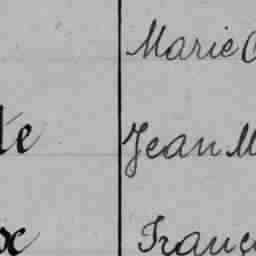 Marie
te Jean M
Franç